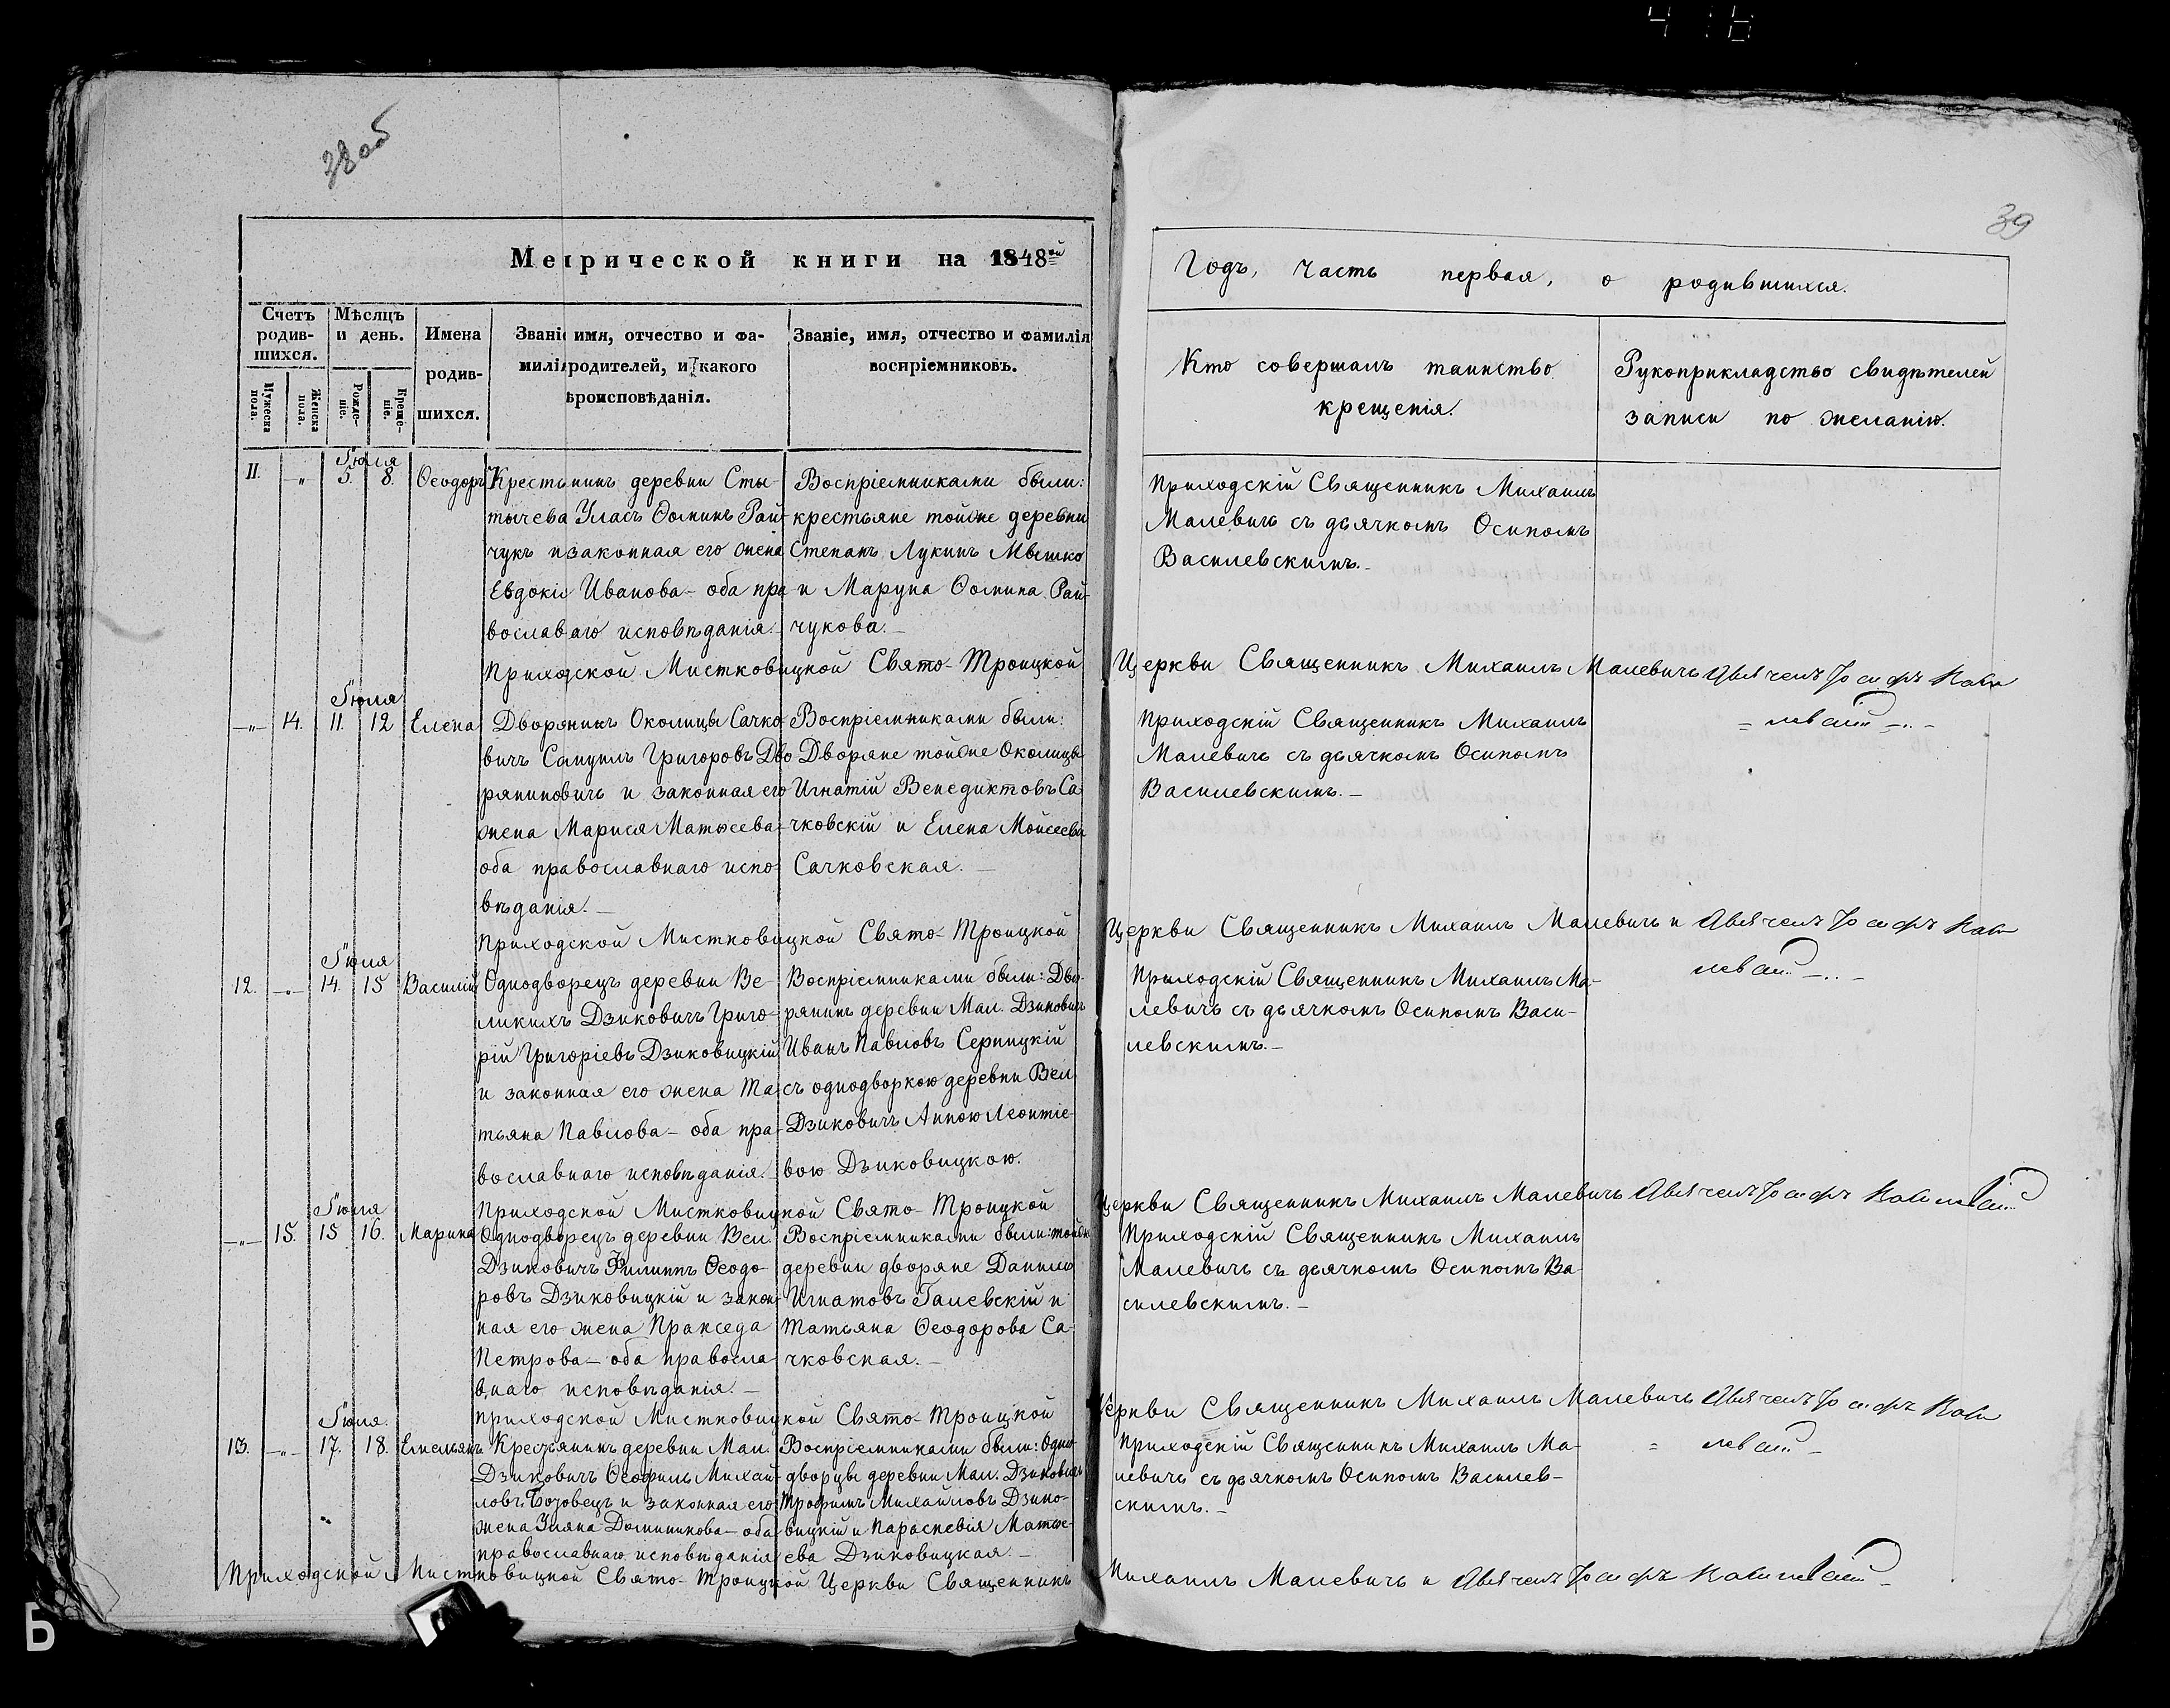 416
38 об
39
Метрической книги на 1848ой
Годъ, часть первая, о родившихся.
Счетъ родив-шихся.
Мужеска пола.
Женска пола.
Мѣсяцъ и день.
Рожде-ніе.
Креще-ніе.
Имена родив-шихся.
Званіе имя, отчество и фа-
милія родителей, и какого
вѣроисповѣданія.
Званіе, имя, отчество и фамилія
воспріемниковъ.
Кто совершалъ таинство
крещенія.
Рукоприкладство свидѣтелей
записи по желанію.
Іюля
11. -„ 5. 8. Ѳеодоръ
Крестьянинъ деревни Сты-
тычева Уласъ Ѳоминъ Рай-
чукъ и законная его жена
Евдокія Иванова - оба пра-
вославнаго исповѣданія.
Воспріемниками были:
крестьяне той же деревни
Степанъ Лукинъ Мышко
и Маруна Ѳомина Рай-
чукова. -
Приходскій Священникъ Михаилъ
Малевичь съ дьячкомъ Осипомъ
Василевскимъ. -
Приходской Мистковицкой Свято-Троицкой Церкви Священникъ Михаилъ Малевичъ
Іюля
-„- 14. 11. 12 Елена
Дворянинъ Околицы Сачко-
вичъ Самуилъ Григоровъ Дво-
ряниновичь и законная его
жена Марися Матвеева -
оба православнаго испо-
вѣданія. -
Воспріемниками были:
Дворяне той же Околицы
Игнатій Венедиктовъ Са-
чковскій и Елена Моисеева
Сачковская. -
Приходскій Священникъ Михаилъ
Малевичь съ дьячкомъ Осипомъ
Василевскимъ. -
Приходской Мистковицкой Свято-Троицкой Церкви Священникъ Михаилъ Малевичь и
Іюля
12. -„- 14. 15 Василій
Однодворецъ деревни Ве-
ликихъ Дзиковичъ Григо-
рій Григоріевъ Дзиковицкій
и законная его жена Та-
тьяна Павлова - оба пра-
вославнаго исповѣданія.
Воспріемниками были: Дво-
рянинъ деревни Мал. Дзиковичъ
Иванъ Павловъ Серницкій
съ однодворкою деревни Вел.
Дзиковичъ Анною Леонтіе-
вою Дзиковицкою.
Приходскій Священникъ Михаилъ Ма-
левичъ съ дьячкомъ Осипомъ Васи-
левскимъ. -
Приходской Мистковицкой Свято-Троицкой Церкви Священникъ Михаилъ Малевичъ
Іюля
-„- 15. 15 16. Марина
Однодворецъ деревни Вел.
Дзиковичъ Филиппъ Ѳеодо-
ровъ Дзиковицкій и закон-
ная его жена Пракседа
Петрова - оба правосла-
внаго исповѣданія. -
Воспріемниками были: той же
деревни дворяне Данило
Игнатовъ Галевскій и
Татьяна Ѳеодорова Са-
чковская. -
Приходскій Священникъ Михаилъ
Малевичь съ дьячкомъ Осипомъ Ва-
силевскимъ. -
Приходской Мистковицкой Свято-Троицкой Церкви Священникъ Михаилъ Малевичъ
Іюля.
13. -„- 17. 18. Емельянъ
Крестьянинъ деревни Мал.
Дзиковичъ Ѳеофилъ Михай-
ловъ и законная его
жена Уляна Доминикова - оба
православнаго исповѣданія
Воспріемниками были: Одно-
дворцы деревни Мал. Дзиковичъ
Трофимъ Михайловъ Дзико-
вицкій и Параскевія Матве-
ева Дзиковицкая. -
Приходскій Священникъ Михаилъ Ма-
левичъ съ дьячкомъ Осипомъ Василев-
скимъ. -
Приходской Мистковицкой Свято-Троицкой Церкви Священникъ Михаилъ Малевичь и
Б